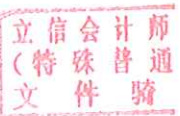 立信会计师
(特殊普通
文件骑